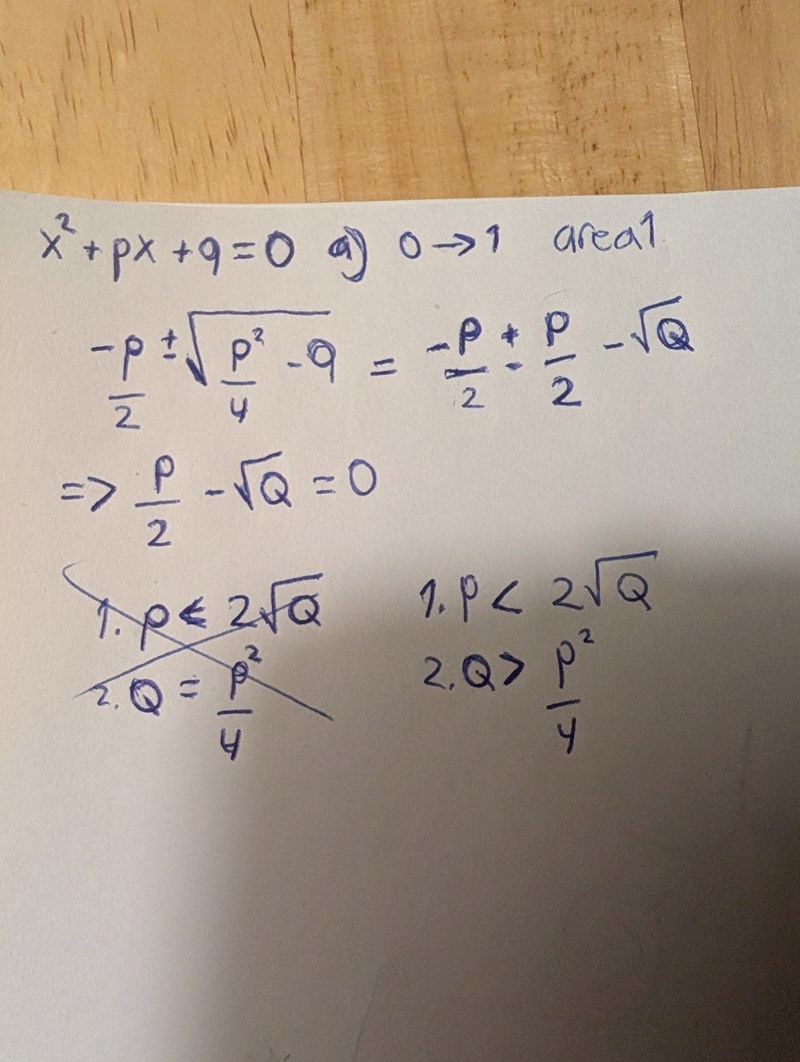 x² + px + q = 0 a) 0 → 1 area1
-p/2 ± √(p²/4 - q) = -p/2 ± p/2 - √Q
=> p/2 - √Q = 0
1. p < 2√Q 1. p < 2√Q
2. Q = p²/4 2. Q > p²/4